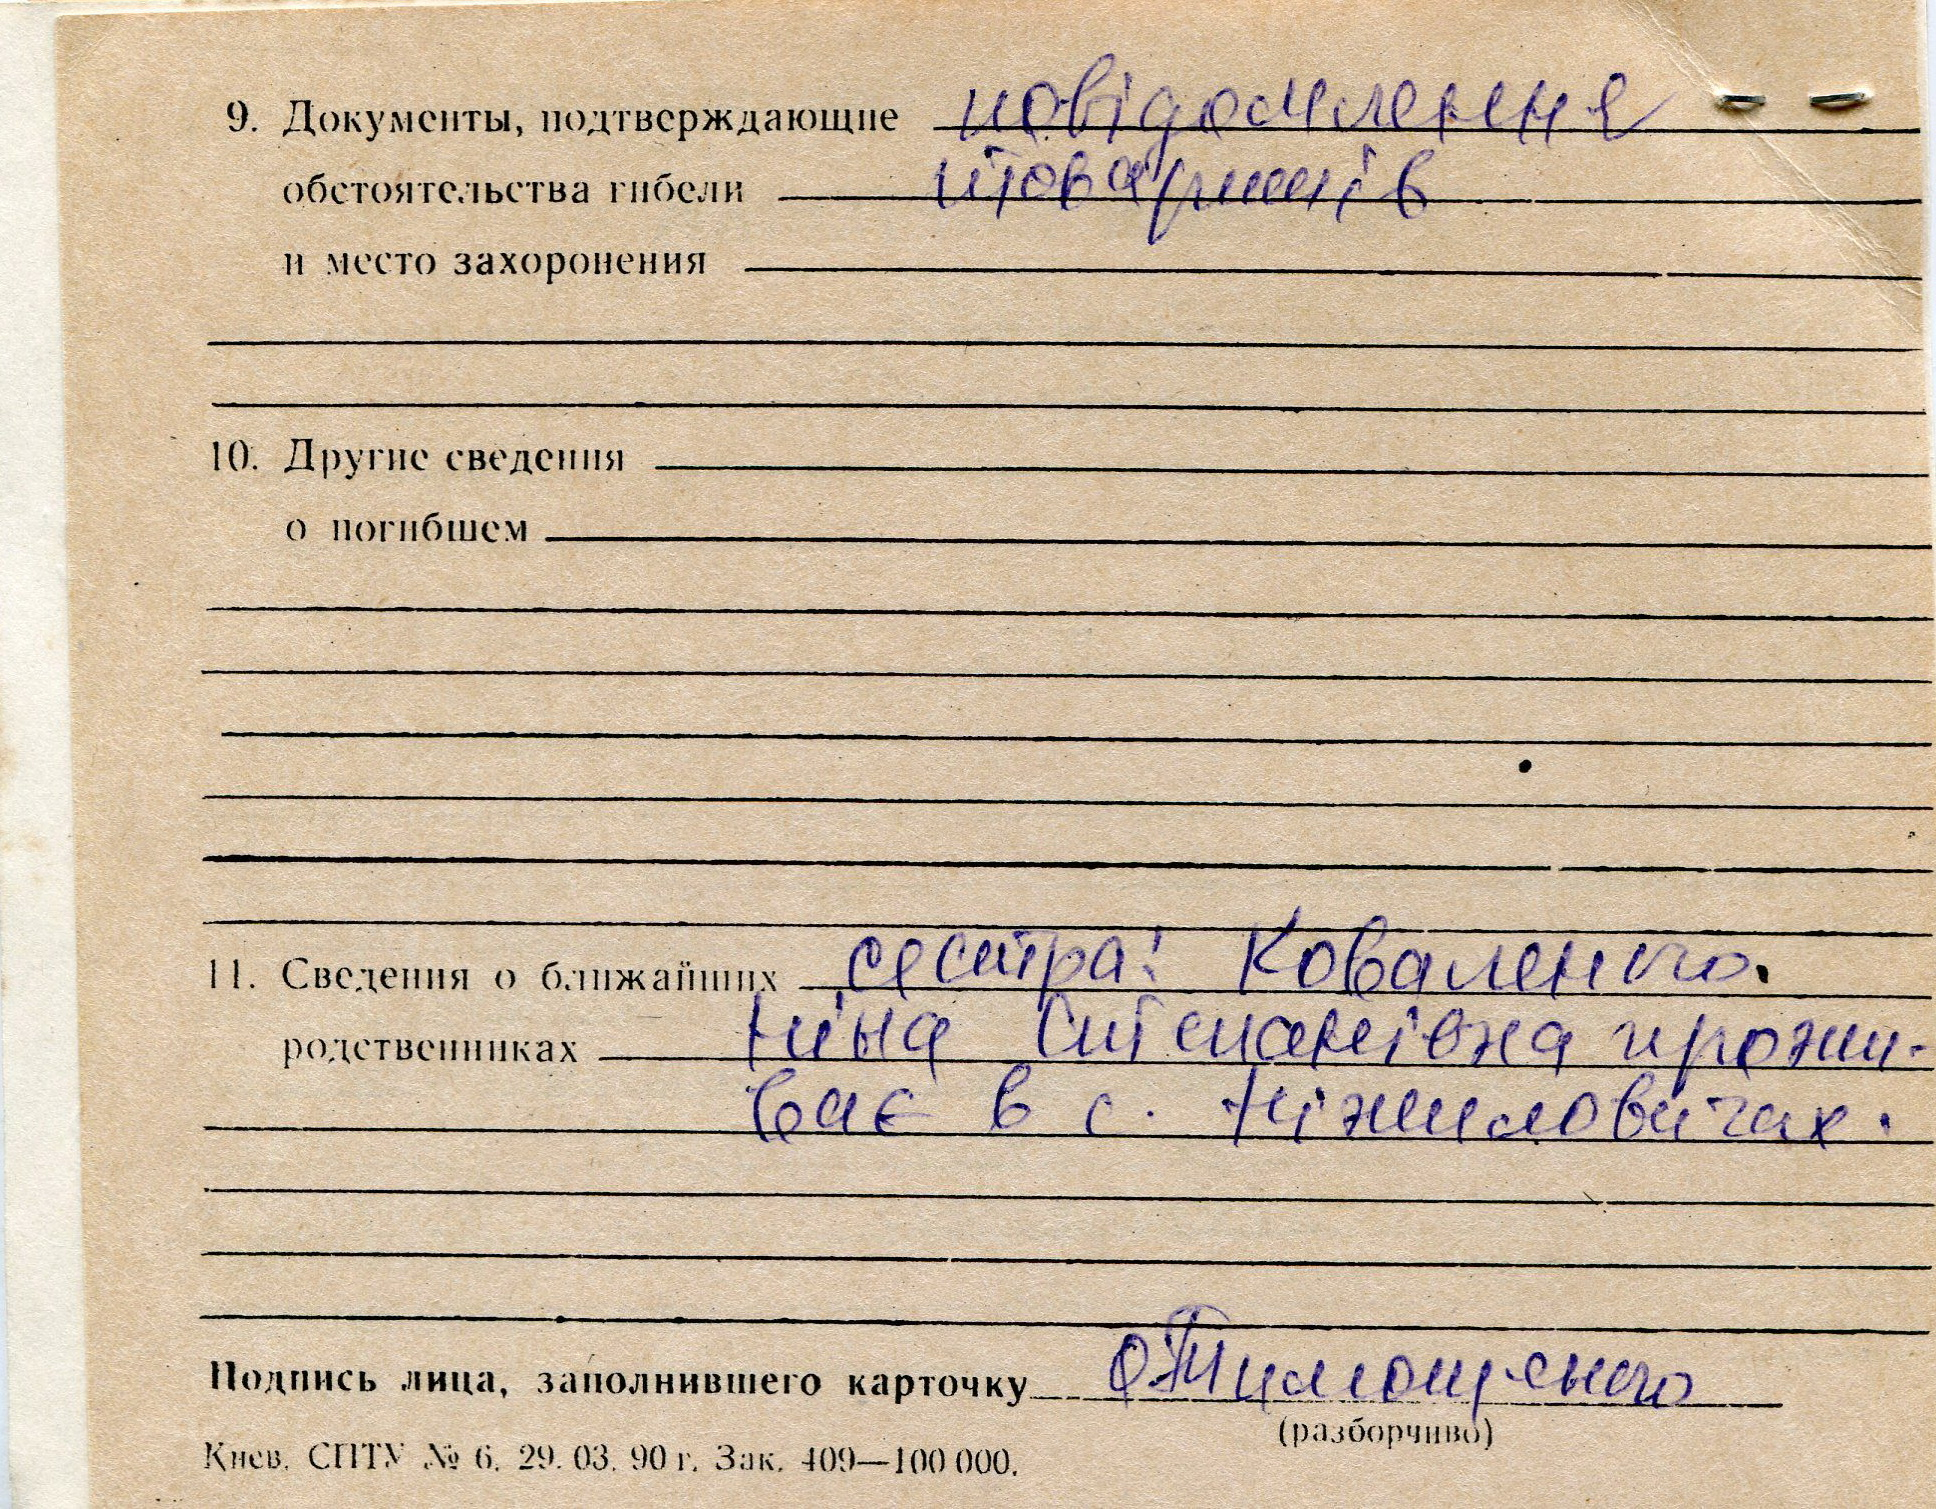 9. Документы, подтверждающие повідомлення
обстоятельства гибели товаришів
и место захоронения
10. Другие сведения
о погибшем
11. Сведения о ближайших сестра: Коваленко.
родственниках Ніна Степанівна прожи-
ває в с. Ніжиловичах.
Подпись лица, заполнившего карточку О Тимощенко
(разборчиво)
Киев. СПТУ № 6. 29. 03. 90 г. Зак. 409—100 000.